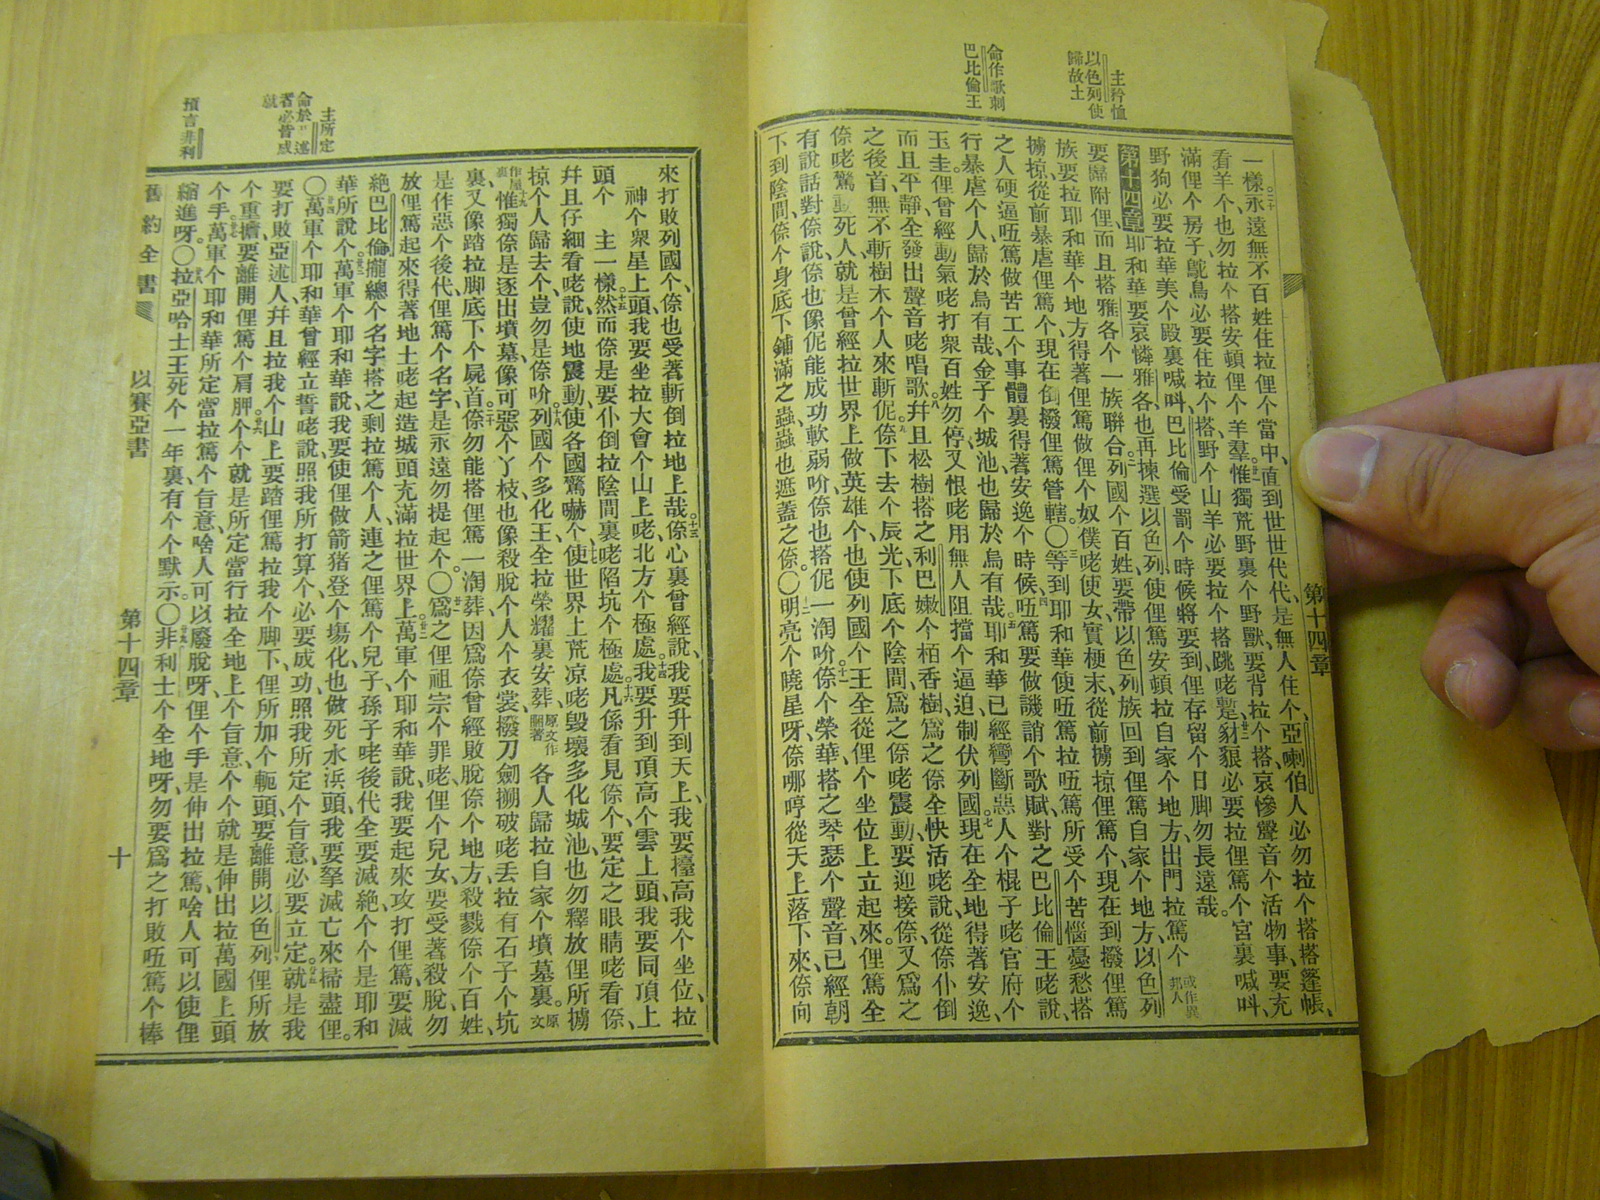 主矜恤
以色列使
歸故土
命作歌刺
巴比倫王
第十四章
一樣、永遠無不百姓住拉俚个當中、直到世世代代、是無人住个、亞喇伯人必勿拉个搭搭篷帳、
看羊个也勿拉个搭安頓俚个羊羣。惟獨荒野裏个野獸、要背拉个搭、哀慘聲音个活物事、要充
滿俚个房子、鴕鳥必要住拉个搭、野个山羊必要拉个搭跳咾豺狼必要拉俚篤个宮裏喊呌、
野狗必要拉華美个殿裏喊呌、巴比倫受罰个時候將要到、俚存留个日脚勿長遠哉。
第十四章耶和華要哀憐雅各、也再揀選以色列、使俚篤安頓拉自家个地方、出門拉篤个或作異邦人
要歸附俚、而且搭雅各个一族聯合。列國个百姓、要帶以色列族回到俚篤自家个地方、以色列
族要拉耶和華个地方得著俚篤做俚个奴僕咾使女、實梗末從前擄掠俚篤个、現在到撥俚篤
擄掠、從前暴虐俚篤个、現在倒撥俚篤管轄。〇等到耶和華使㑚篤拉㑚篤所受个苦惱憂愁搭
之人硬逼㑚篤做苦工个事體裏得著安逸个時候、㑚篤要做譏誚个歌賦、對之巴比倫王咾說、
行暴虐个人歸於烏有哉、金子个城池也歸於烏有哉。耶和華已經彎斷惡人个棍子咾官府个
玉圭。俚曾經動氣咾打衆百姓勿停、又恨咾用無人阻擋个逼迫制伏列國。現在全地得著安逸、
而且平靜、全發出聲音咾唱歌。幷且松樹搭之利巴嫩个栢香樹、爲之倷全快活咾說、從倷仆倒
之後首、無不斬樹木个人來斬伲。倷下去个辰光、下底个陰間、爲之倷咾震動、要迎接倷、又爲之
倷咾驚動死人、就是曾經拉世界上做英雄个、也使列國个王全從俚个坐位上立起來。俚篤全
有說話對倷說、倷也像伲能成功軟弱吤、倷也搭伲一淘吤。倷个榮華搭之琴瑟个聲音、已經朝
下到陰間、倷个身底下鋪滿之蟲、蟲也遮蓋之倷。〇明亮个曉星呀、倷哪哼從天上落下來、倷向
主所定
者必皆成
就
預言非利
來打敗列國个、倷也受著斬倒拉地上哉。倷心裏曾經說、我要升到天上、我要擡高我个坐位、拉
神个衆星上頭、我要坐拉大會个山上咾北方个極處。我要升到頂高个雲上頭、我要同頂上
頭个　主一樣。然而倷是要仆倒拉陰間裏咾陷坑个極處。凡係看見倷个、要定之眼睛咾看倷、
幷且仔細看咾說、使地震動使各國驚嚇个、使世界上荒凉咾毀壞多化城池也勿釋放俚所擄
掠个人歸去个、豈勿是倷吤。列國个多化王、全拉榮耀裏安葬、原文作睏著各人歸拉自家个墳墓裏。原文
作屋裏惟獨倷是逐出墳墓、像可惡个丫枝、也像殺脫个人个衣裳、撥刀劍搠破咾丢拉有石子个坑
裏、又像踏拉脚底下个屍首。倷勿能搭俚篤一淘葬、因爲倷曾經敗脫倷个地方、殺戮倷个百姓、
是作惡个後代、俚篤个名字、是永遠勿提起个。〇爲之俚祖宗个罪咾、俚个兒女、要受著殺脫、勿
放俚篤起來、得著地土咾起造城頭、充滿拉世界上。萬軍个耶和華說、我要起來攻打俚篤、要滅
絶巴比倫攏總个名字、搭之剩拉篤个人、連之俚篤个兒子、孫子咾後代、全要滅絶个、个是耶和
華所說个。萬軍个耶和華說、我要使俚做箭猪登个塲化、也做死水浜頭、我要拏滅亡來掃盡俚。
〇萬軍个耶和華曾經立誓咾說、照我所打算个、必要成功、照我所定个旨意、必要立定。就是我
要打敗亞述人、幷且拉我个山上、要踏俚篤拉我个脚下、俚所加个軛頭、要離開以色列、俚所放
个重擔、要離開俚篤个肩胛。个个就是所定當行拉全地上个旨意、个个就是伸出拉萬國上頭
个手。萬軍个耶和華所定當拉篤个旨意、啥人可以廢脫呀、俚个手是伸出拉篤、啥人可以使俚
縮進呀。〇拉亞哈士王死个一年裏、有个个默示。〇非利士个全地呀、勿要爲之打敗㑚篤个棒
舊約全書
以賽亞書
第十四章
十